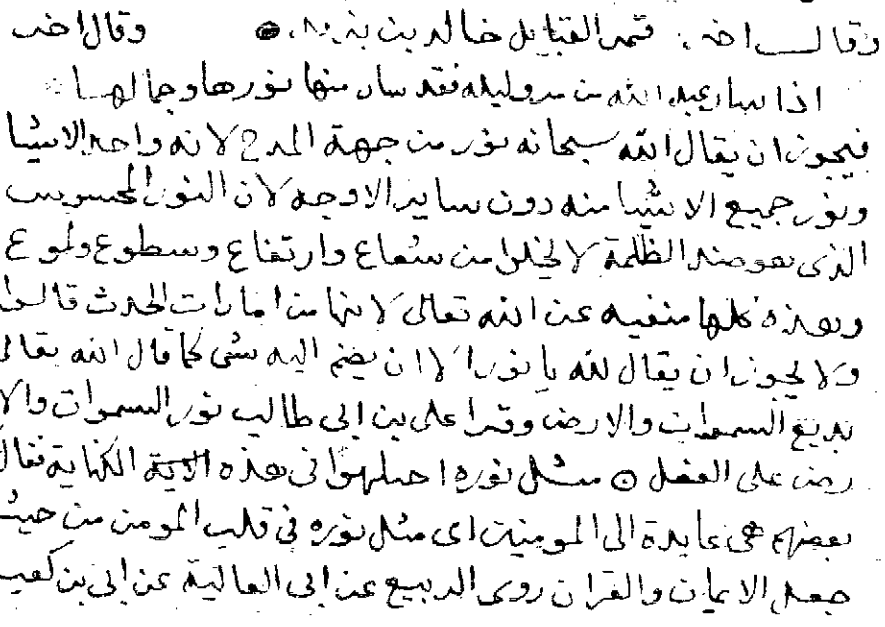 وقال اخر قمر القبايل خالد بن يزيد وقال اخر
اذا سار عبد الله من مرو ليلة فقد سار منها نورها وجمالها
فيجوز ان يقال الله سبحانه نور من جهة المدح لانه واحد الاشيا
ونور جميع الاشيا منه دون ساير الاوجه لان النور المحسوس
الذى هو ضد الظلمة لا يخلو من شعاع وارتفاع وسطوع ولموع
وهذه كلها منفيه عن الله تعالى لانها من امارات الحدث قالوا
ولا يجوز ان يقال لله يا نور الا ان يضم اليه شى كما قال الله تعالى
بديع السموات والارض وقرا على بن ابى طالب نور السموات والا
رض على الفعل ○ مثل نوره اختلفوا فى هذه الآية الكناية فقال
بعضهم هى عايدة الى المومنين اى مثل نوره فى قلب المومن من حيث
جعل الايمان والقران روى الربيع عن ابى العالية عن ابى بن كعب